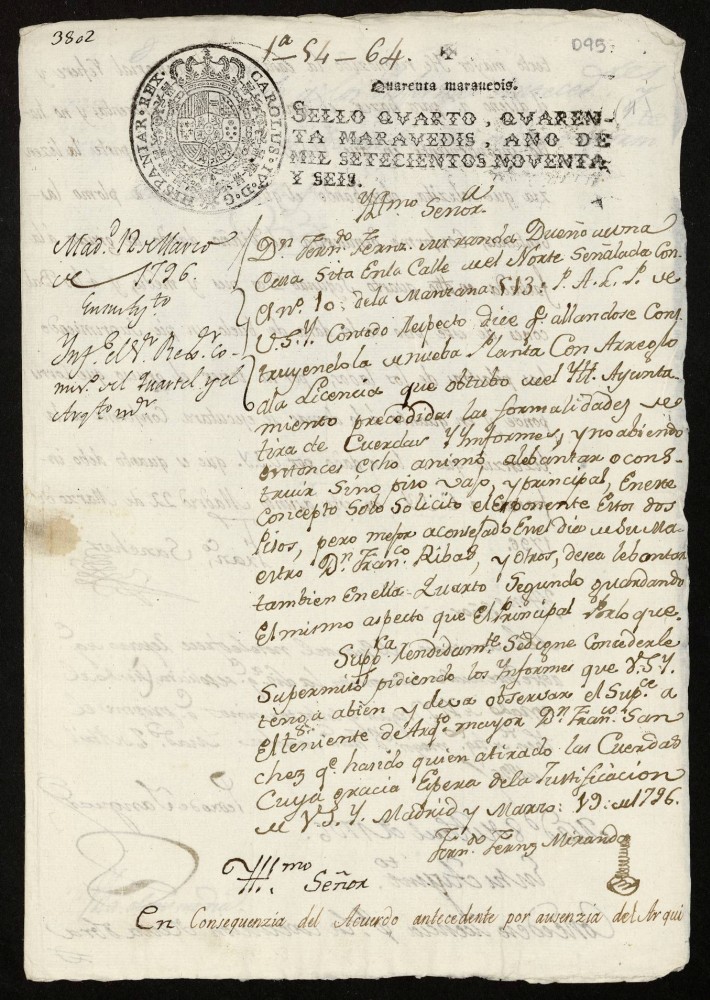 3802
1ª 54-64.
D95
HISPANIAR. REX. CAROLUS. IV. D. G.
Quarenta marauedis.
SELLO QVARTO, QVAREN-
TA MARAVEDIS, AÑO DE
MIL SETECIENTOS NOVENTA
Y SEIS.
Mad.d 12 de Marzo
de 1796.
En su Ay.to
Ynf.e el S.r Reg.r Co-
mis.o del Quartel y el
Arq.to m.r
Yll.mo Señor
D.n Fern.do Fern.z Miranda Dueño de una
Casa Sita En la Calle del Norte Señalada Con
el n.º 10: de la Manzana 513: P. A. L. P. de
V.S.Y. Con todo Respecto dice q.e allandose Cons
truyendola de nueba Planta Con Arreglo
ala Licencia que obtubo del Yll. Ayunta-
miento precedidas las formalidades de
tira de Cuerdas Y Ynformes, y no abiendo
entonces echo animo alebantar o cons-
truir Sino piso vajo, y principal, En ese
Concepto Solo Solicito el Esponente Estos dos
Pisos, pero mejor aconsejado En el dia de su Ma-
estro D.n Fran.co Ribas, y otros, desea lebantar
tambien En ella Quarto Segundo guardando
El mismo aspecto que El Principal Por lo que.
Sup.ca Rendidam.te Se digne Concederle
Su permiso pidiendo los Ynformes que V.S.Y.
tenga a bien y deva observar el Sup.te a
El teniente de Arq.to mayor D.n Fran.co San
chez q.e ha sido quien a tirado las Cuerdas
Cuya gracia Espera de la Justificacion
de V.S.Y. Madrid y Marzo: 12: de 1796.
Fern.do Fern.z Miranda
Yll.mo
Señor
En Consequenzia del Acuerdo antecedente por ausenzia del Arqui